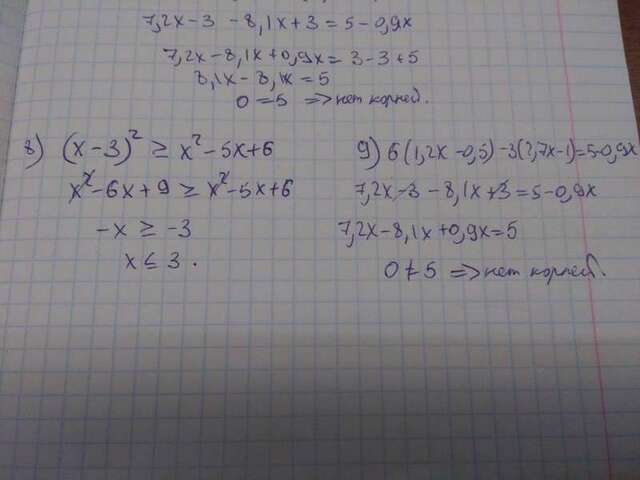 7,2x-3 -8,1x+3=5-0,9x
7,2x-8,1x+0,9x=3-3+5
8,1x-8,1x=5
0=5 => нет корней.
8) (x-3)² ≥ x²-5x+6
x²-6x+9 ≥ x²-5x+6
-x ≥ -3
x ≤ 3.
9) 6(1,2x-0,5)-3(2,7x-1)=5-0,9x
7,2x-3-8,1x+3=5-0,9x
7,2x-8,1x+0,9x=5
0≠5 => нет корней.